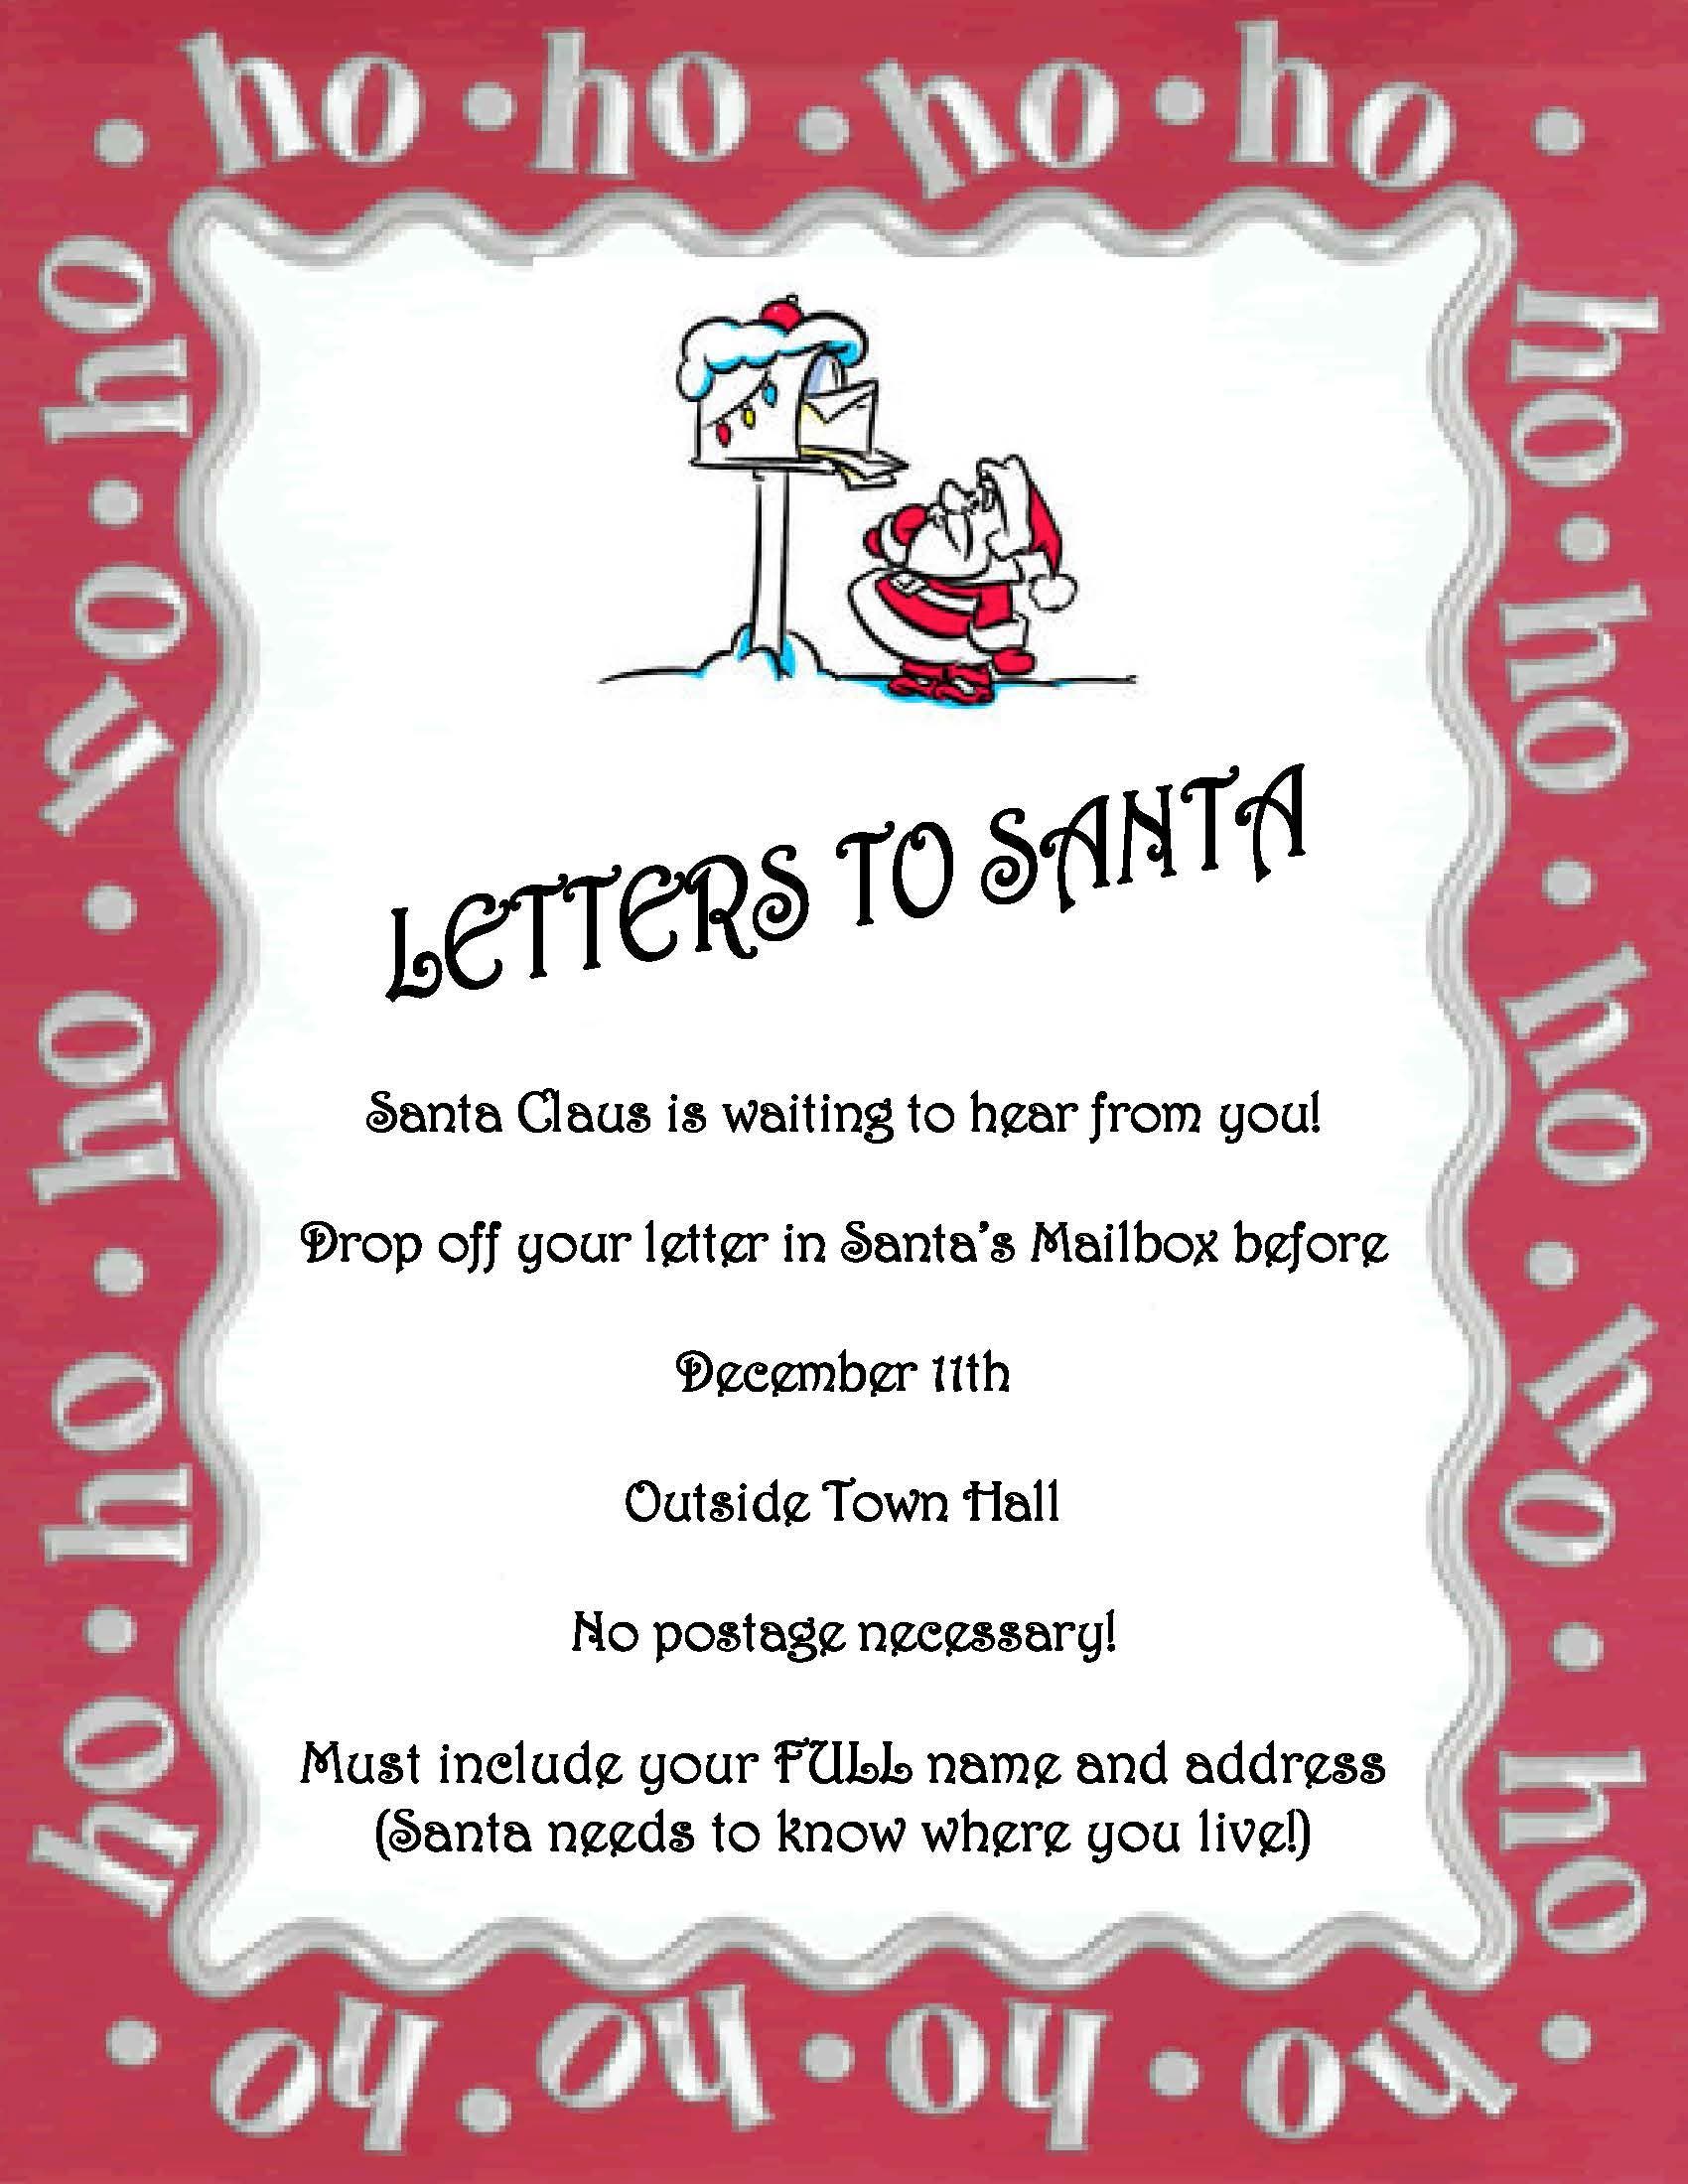 ho • ho • ho • ho •
ho • ho • ho • ho • ho
LETTERS TO SANTA
Santa Claus is waiting to hear from you!
Drop off your letter in Santa's Mailbox before
December 11th
Outside Town Hall
No postage necessary!
Must include your FULL name and address
(Santa needs to know where you live!)
ho • ho • ho • ho • ho
• ho • ho • ho • ho •